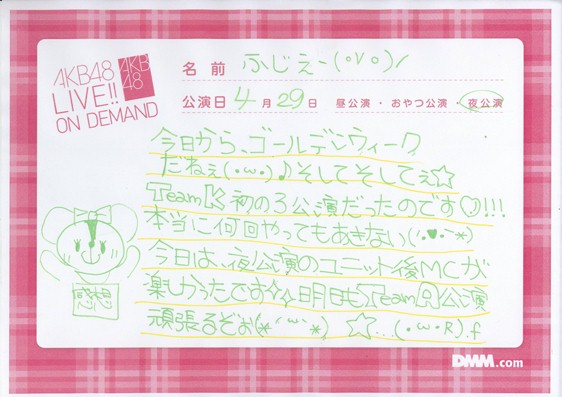 AKB48
LIVE!!
ON DEMAND
AKB
48
名前 ふじえー(°v°)ノ
公演日 4月29日 昼公演・おやつ公演・夜公演
今日から、ゴールデンウィーク
だねぇ(・ω・)♪そしてそしてぇ☆
TeamK初の3公演だったのです♡!!!
本当に何回やってもあきない(´・♥・`*)
今日は、夜公演のユニット後MCが
楽しかったです✧✧明日もTeamA公演
頑張るぞぉ(*´ω`*) ☆...(・ω・R).f
感想
DMM.com